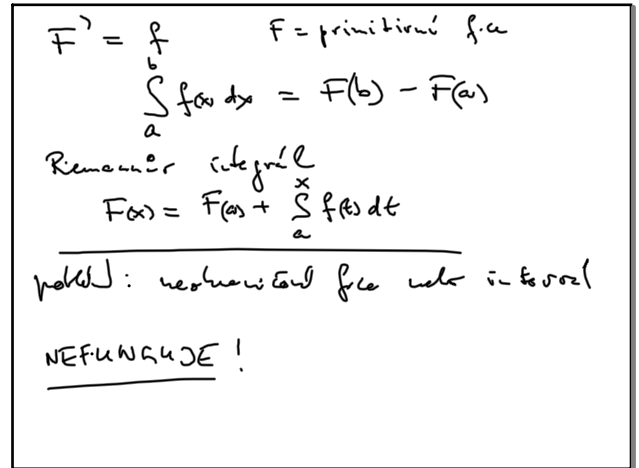 F' = f F = primitivní f.ce
∫_a^b f(x) dx = F(b) - F(a)
Riemannův integrál
F(x) = F(a) + ∫_a^x f(t) dt
: neohraničená fce nebo interval
NEFUNGUJE !